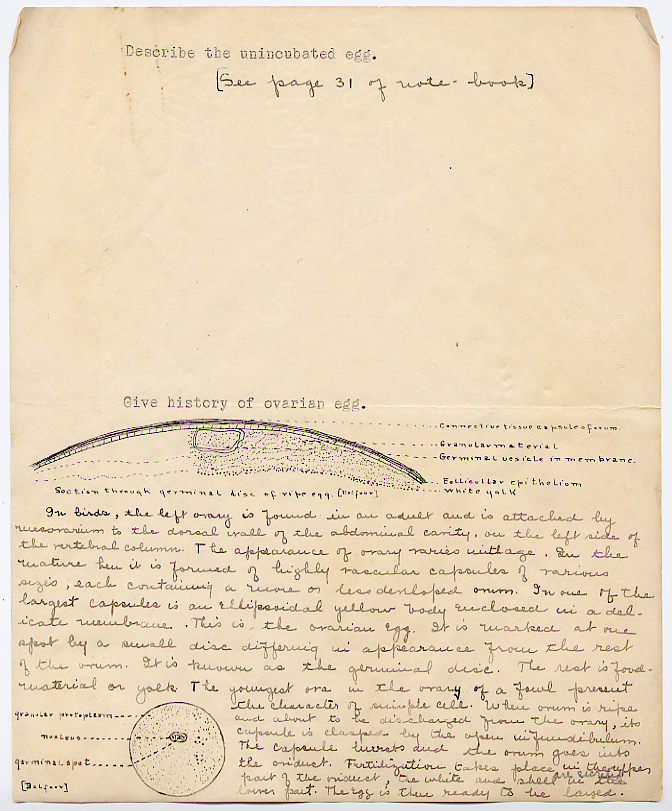 Describe the unincubated egg.
[See page 31 of note-book]
Give history of ovarian egg.
Connective tissue capsule of orum
Granular material
Germinal vesicle in membrane.
Follicular epithelium
White yolk
Section through germinal disc of ripe egg. [Balfour]
In birds, the left ovary is found in an adult and is attached by
mesovarium to the dorsal wall of the abdominal cavity, on the left side of
the vertebral column. The appearance of ovary varies with age. In the
mature hen it is formed of highly vascular capsules of various
sizes, each containing a more or less developed ovum. In one of the
largest capsules is an ellipsoidal yellow body enclosed in a del-
icate membrane. This is the ovarian egg. It is marked at one
spot by a small disc differing in appearance from the rest
of the ovum. It is known as the germinal disc. The rest is food-
material or yolk. The youngest ova in the ovary of a fowl present
the character of simple cells. When ovum is ripe
and about to be discharged from the ovary, its
capsule is clasped by the open infundibulum.
The capsule bursts and the ovum goes into
the oviduct. Fertilization takes place in the upper
part of the oviduct, the white and shell are in the
lower part. The egg is then ready to be layed.
granular protoplasm
nucleus
germinal spot
[Balfour]